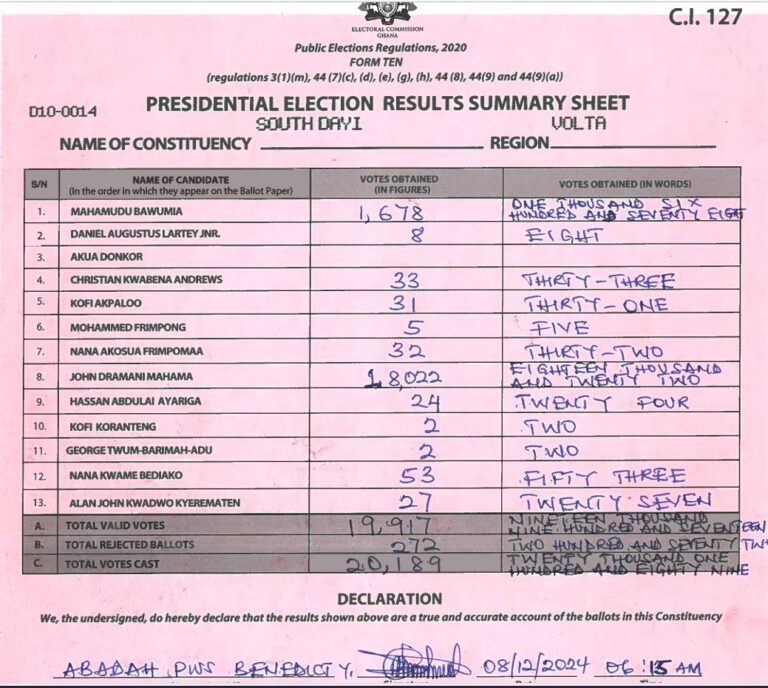 C.I. 127
ELECTORAL COMMISSION
GHANA
Public Elections Regulations, 2020
FORM TEN
(regulations 3(1)(m), 44 (7)(c), (d), (e), (g), (h), 44 (8), 44(9) and 44(9)(a))
D10-0014
PRESIDENTIAL ELECTION RESULTS SUMMARY SHEET
NAME OF CONSTITUENCY SOUTH DAYI REGION VOLTA
S/N NAME OF CANDIDATE (In the order in which they appear on the Ballot Paper) VOTES OBTAINED (IN FIGURES) VOTES OBTAINED (IN WORDS)
1. MAHAMUDU BAWUMIA 1,678 ONE THOUSAND SIX HUNDRED AND SEVENTY EIGHT
2. DANIEL AUGUSTUS LARTEY JNR. 8 EIGHT
3. AKUA DONKOR
4. CHRISTIAN KWABENA ANDREWS 33 THIRTY-THREE
5. KOFI AKPALOO 31 THIRTY-ONE
6. MOHAMMED FRIMPONG 5 FIVE
7. NANA AKOSUA FRIMPOMAA 32 THIRTY-TWO
8. JOHN DRAMANI MAHAMA 18,022 EIGHTEEN THOUSAND AND TWENTY TWO
9. HASSAN ABDULAI AYARIGA 24 TWENTY FOUR
10. KOFI KORANTENG 2 TWO
11. GEORGE TWUM-BARIMAH-ADU 2 TWO
12. NANA KWAME BEDIAKO 53 FIFTY THREE
13. ALAN JOHN KWADWO KYEREMATEN 27 TWENTY SEVEN
A. TOTAL VALID VOTES 19,917 NINETEEN THOUSAND NINE HUNDRED AND SEVENTEEN
B. TOTAL REJECTED BALLOTS 272 TWO HUNDRED AND SEVENTY TW
C. TOTAL VOTES CAST 20,189 TWENTY THOUSAND ONE HUNDRED AND EIGHTY NINE
DECLARATION
We, the undersigned, do hereby declare that the results shown above are a true and accurate account of the ballots in this Constituency
ABADAH BENEDICTY, 08/12/2024 06:15 AM